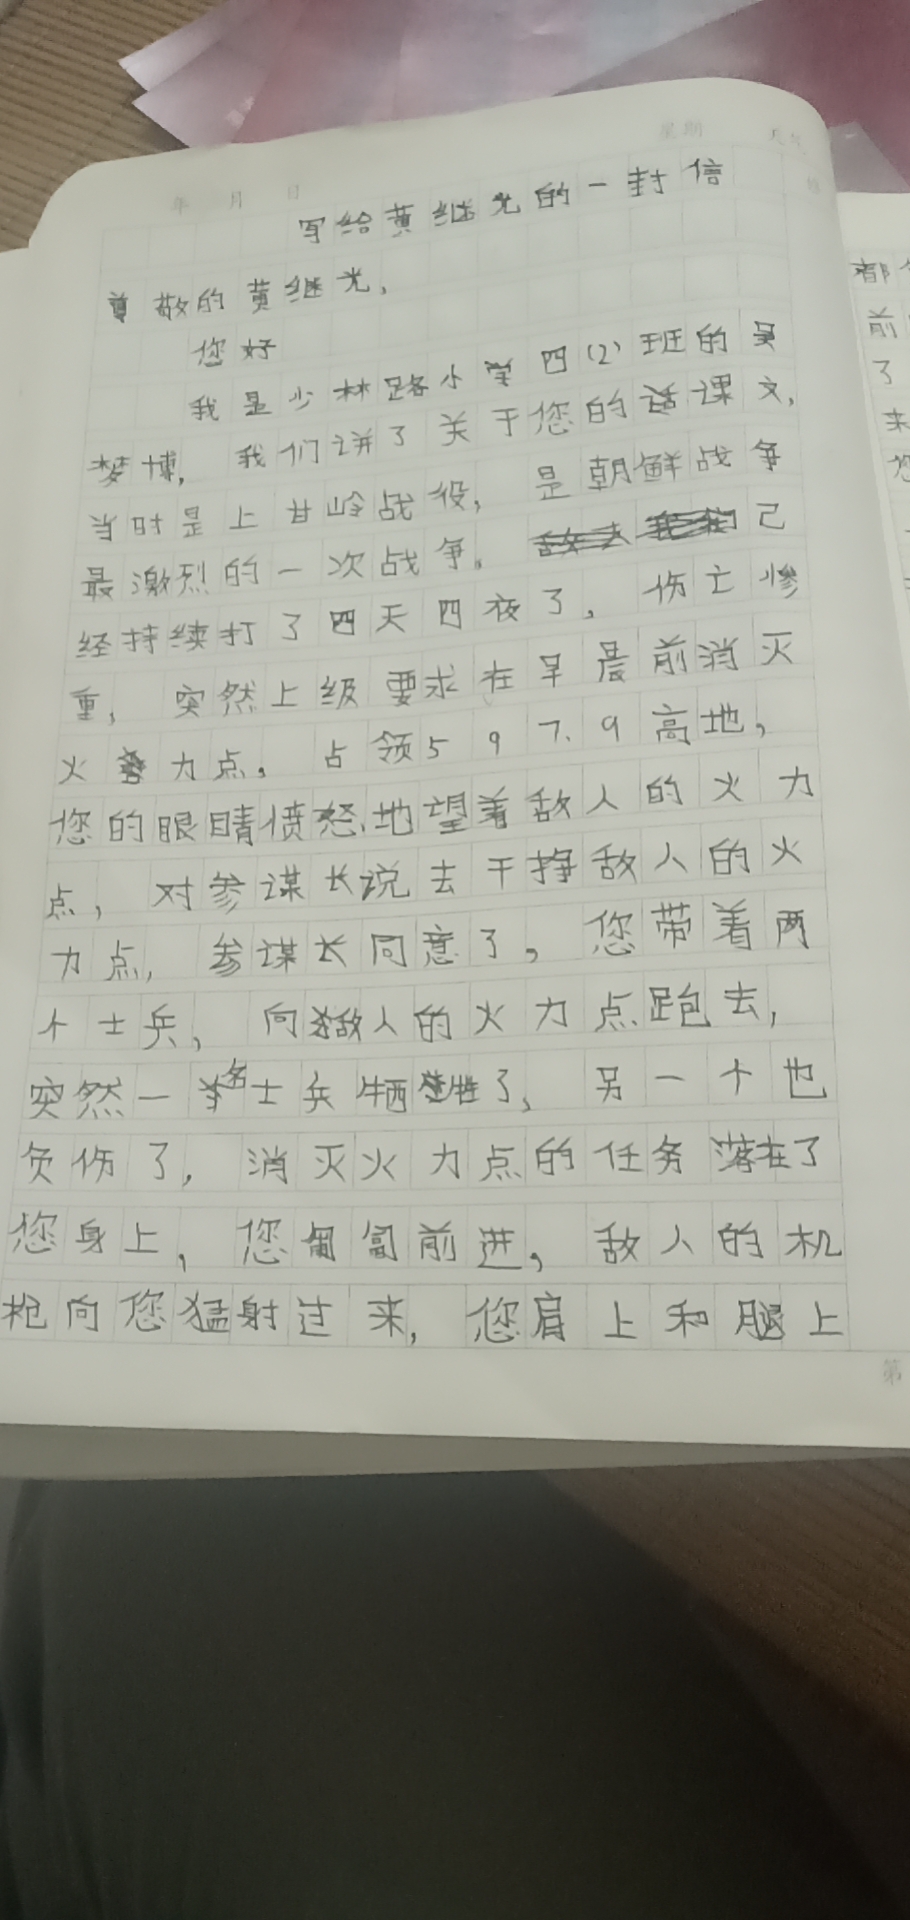 星期
年 月 日
写给黄继光的一封信
尊敬的黄继光,
您好
我是少林路小学四(2)班的吴
梦博,我们讲了关于您的话课文,
当时是上甘岭战役,是朝鲜战争
最激烈的一次战争。己
经持续打了四天四夜了,伤亡惨
重,突然上级要求在早晨前消灭
火力点。占领597.9高地,
您的眼睛愤怒地望着敌人的火力
点,对参谋长说去干掉敌人的火
力点,参谋长同意了。您带着两
个士兵,向敌人的火力点跑去,
突然一名士兵牺牲了,另一个也
负伤了,消灭火力点的任务落在了
您身上,您匍匐前进,敌人的机
枪向您猛射过来,您肩上和腿上
第
都
前
了
来
您